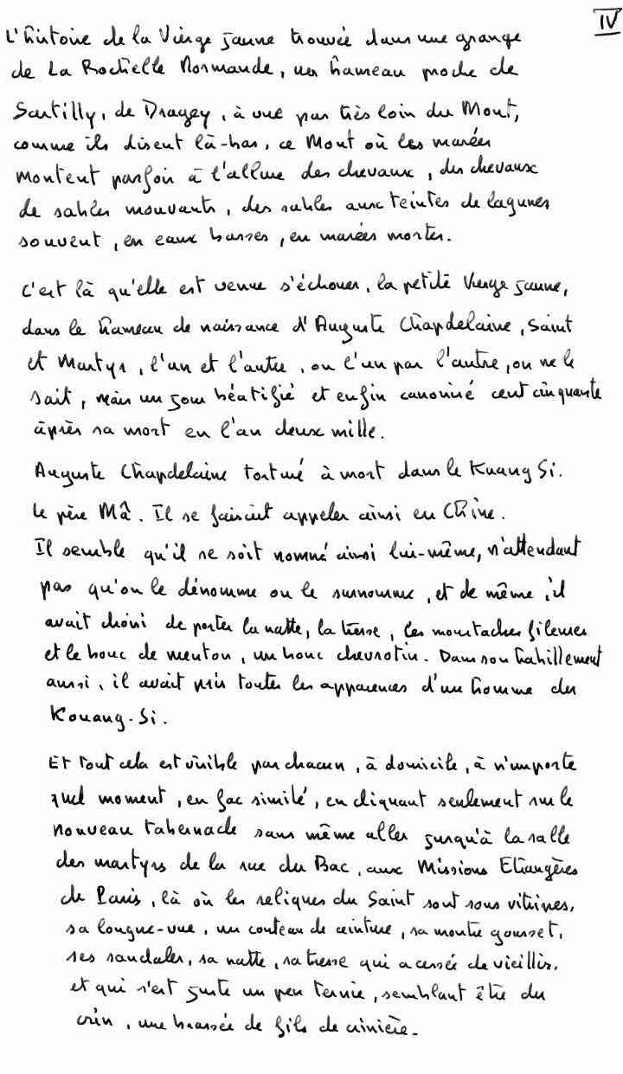 IV
L'histoire de la Vierge jaune trouvée dans une grange
de La Rochelle Normande, un hameau proche de
Sartilly, de Dragey, à vue pas très loin du Mont,
comme ils disent là-bas, ce Mont où les marées
montent parfois à l'allure des chevaux, des chevaux
de sables mouvants, des sables aux teintes de lagunes
souvent, en eaux basses, en marées mortes.
C'est là qu'elle est venue s'échouer, la petite Vierge jaune,
dans le hameau de naissance d'Auguste Chapdelaine, Saint
et Martyr, l'un et l'autre, ou l'un par l'autre, on ne le
sait, mais un jour béatifié et enfin canonisé cent cinquante
après sa mort en l'an deux mille.
Auguste Chapdelaine torturé à mort dans le Kuang Si.
Le père Mâ. Il se faisait appeler ainsi en Chine.
Il semble qu'il se soit nommé ainsi lui-même, n'attendant
pas qu'on le dénomme ou le surnomme, et de même il
avait choisi de porter la natte, la tresse, les moustaches fileuses
et le bouc de menton, un bouc chevrotin. Dans son habillement
aussi, il avait pris toutes les apparences d'un homme du
Kouang-Si.
Et tout cela est visible par chacun, à domicile, à n'importe
quel moment, en fac similé, en cliquant seulement sur le
nouveau tabernacle sans même aller jusqu'à la salle
des martyrs de la rue du Bac, aux Missions Etrangères
de Paris, là où les reliques du Saint sont sous vitrines,
sa longue-vue, un couteau de ceinture, sa montre gousset,
ses sandales, sa natte, sa tresse qui a cessé de vieillir,
et qui s'est juste un peu ternie, semblant être du
crin, une brassée de fils de crinière.